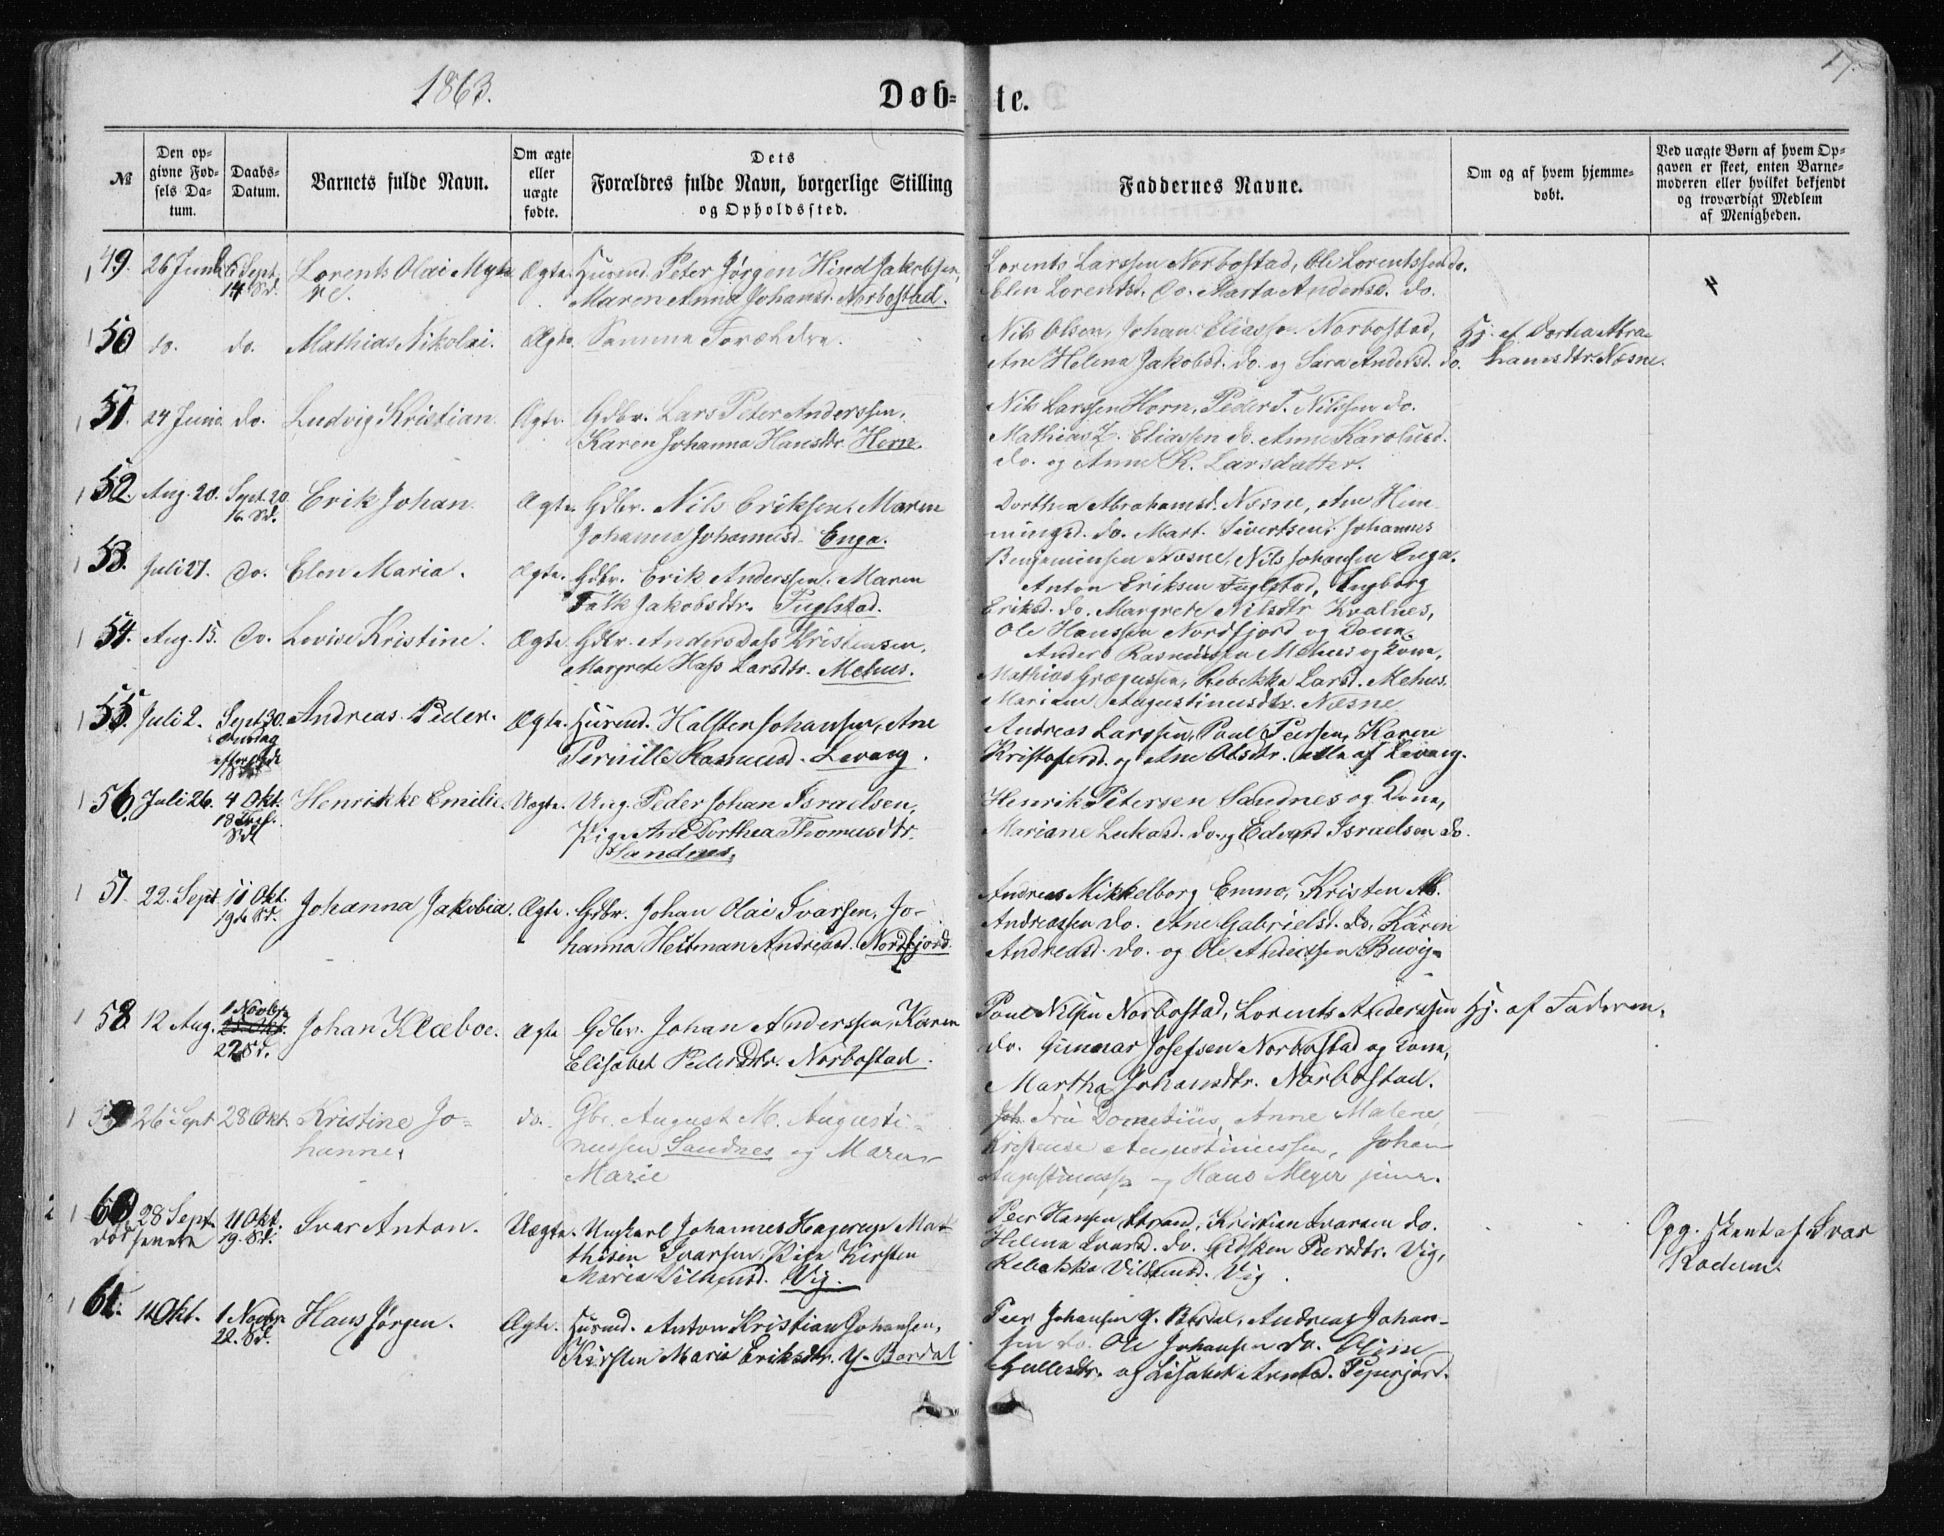 1863.
Døb-te.
17.
№
Den opgivne Fødsels Datum.
Daabs-Datum.
Barnets fulde Navn.
Om ægte eller uægte fødte.
Dets Forældres fulde Navn, borgerlige Stilling og Opholdssted.
Faddernes Navne.
Om og af hvem hjemmedøbt.
Ved uægte Børn af hvem Opgaven er skeet, enten Barnemoderen eller hvilket bekjendt og troværdigt Medlem af Menigheden.
49. 26 Juni Sept. Lorents Olai Ægte. Husmd. Peter Jørgen Hind Jakobsen, Lorents Larssen Norbostad, Ole Lorentssen do.
14. Sd. Maren Anna Johansd. Norbostad. Elen Lorentsd. do. Marta Andersd. do.
50 do. do. Mathias Nikolai. Ægte. Samme Forældre. Nils Olsen, Johan Eliassen Norbostad, Hj. af Dorthea Abra-
Ane Helena Jakobsd. do. og Sara Andersd. do. hamsdtr. Næsne.
51. 24 Juni. do. Ludvig Kristian. Ægte. Gdbr. Lars Peter Anderssen, Nils Larssen Horn, Peder T. Nilssen do.
Karen Johanna Hansdtr. Horn. Mathias Z. Eliassen do. Anne Karolusd.
do. og Anne K. Larsdatter.
52. Aug. 20. Sept. 20 Erik Johan. Ægte. Gdbr. Nils Eriksen, Maren Dorthea Abrahamsd. Næsne, Ane Hem-
16. Sd. Johanna Johannesd. Enga. mingsd. do. Mart. Sivertsen, Johannes
Benjaminsen Næsne, Nils Johansen Enga.
53. Juli 27. do. Elen Maria. Ægte. Gdbr. Erik Anderssen, Maren Anton Eriksen Fuglstad, Ingborg
Falk Jakobsdtr. Fuglstad. Eriksd. do. Margrete Nilsdtr Kvalnes,
Ole Hanssen Nordfjord og Kona.
54. Aug. 15. do. Lovise Kristine. Ægte. Gdbr. Anders Dass Kristensen, Anders Rasmussen Mehus og Kona,
Margrete Hass Larsdtr. Mehus. Mathias Grægussen, Rebekka Larsd. Mehus.
Mariane Augustinusdtr. Næsne.
55. Juli 2. Sept 30. Andreas Peder. Ægte. Husmd. Halsten Johansen, Ane Andreas Larssen, Paul Peersen, Karen
Onsdag efter Sd. Pernille Rasmusd. Levang. Kristofersd. og Ane Olsdtr. alle af Levang.
56. Juli 26. 4 Okt. Henrikke Emilie Uægte. Ung. Peder Johan Israelsen, Henrik Petersen Sandnes og Kona,
18 Sd. Pige Ane Dorthea Thomasdtr. Mariane Lukasd. do. og Edvard Israelsen do.
Sandnes.
57. 22. Sept. 11 Okt. Johanna Jakobia. Ægte. Gdbr. Johan Olai Ivarsen, Jo- Andreas Mikkelborg Emno, Kristen M.
19de Sd. hanna Heitman Andreasd. Nordfjord. Andreassen do. Ane Gabrielsd. do. Karen
Andreasd. do. og Ole Anderssen Buvig.
58. 12 Aug. 1 Novbr. Johan Klæboe. Ægte Gdbr. Johan Anderssen, Karen Paul Nilsen Norbostad, Lorents Anderssen Hj. af Faderen.
25 Okt.
22 Sd. Elisabet Pedersdtr. Norbostad. do. Gunnar Josefsen Norbostad og Kona,
Martha Johansdtr. Norbostad.
59 26 Sept 28 Okt. Kristine Jo- do. Gbr. August M. Augusti- Fru Dometius, Anne Malene
hanne. nussen Sandnes og Maren Kristense Augustinussen, Johan
Marie Augustinuss. og Hans Meyer junr.
60 28 Sept. 11 Okt. Ivar Anton. Uægte. Ungkarl Johannes Hagerup Mat- Peer Hansen Strand, Kristian Ivarsen do. Opg. skeet af Ivar
19. Sd. thisen Ivarsen, Pige Kirsten Helena Ivarsd. do. Gidsken Peersdtr. Vig, Kodem.
Maria Vilhemsd. Vig. Rebekka Vilhemsd. Vig.
61. 11 Okt. 1 Novbr. Hans Jørgen. Ægte. Husmd. Anton Kristian Johansen, Peer Johansen Y. Bardal, Andreas Johan-
22. Sd. Kirsten Maria Eriksdtr. Y. Bardal sen do. Ole Johansen do. Oline
og Lisabet Arntsd.